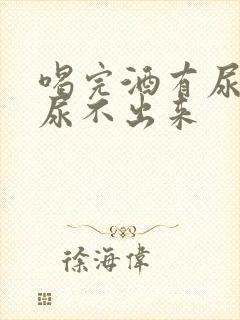 喝完酒有尿
尿不出来
徐海偉